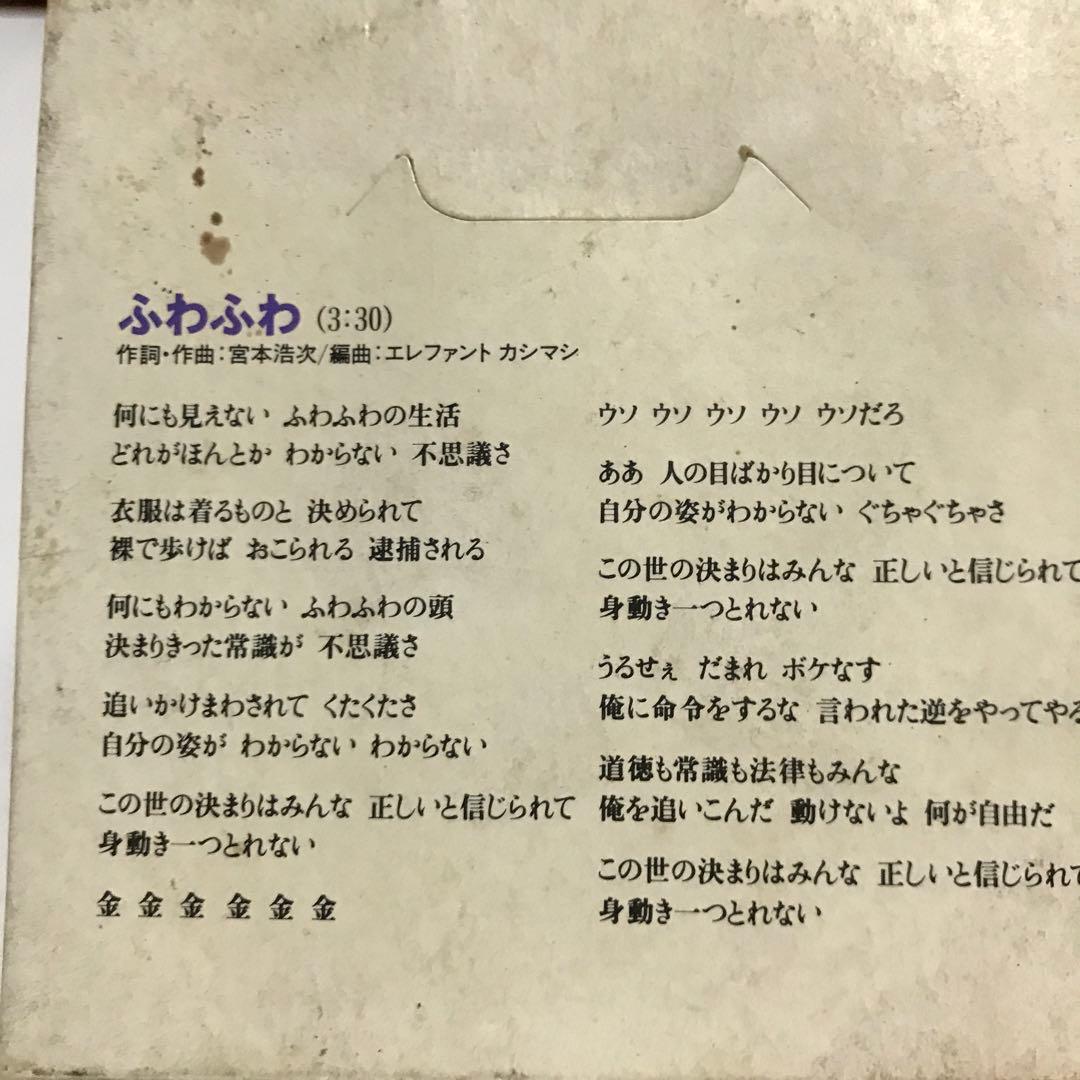 ふわふわ (3:30)
作詞・作曲:宮本浩次/編曲:エレファント カシマシ
何にも見えない ふわふわの生活
どれがほんとか わからない 不思議さ
衣服は着るものと 決められて
裸で歩けば おこられる 逮捕される
何にもわからない ふわふわの頭
決まりきった常識が 不思議さ
追いかけまわされて くたくたさ
自分の姿が わからない わからない
この世の決まりはみんな 正しいと信じられて
身動き一つとれない
金 金 金 金 金 金
ウソ ウソ ウソ ウソ ウソだろ
ああ 人の目ばかり目について
自分の姿がわからない ぐちゃぐちゃさ
この世の決まりはみんな 正しいと信じられて
身動き一つとれない
うるせぇ だまれ ボケなす
俺に命令をするな 言われた逆をやってやる
道徳も常識も法律もみんな
俺を追いこんだ 動けないよ 何が自由だ
この世の決まりはみんな 正しいと信じられて
身動き一つとれない